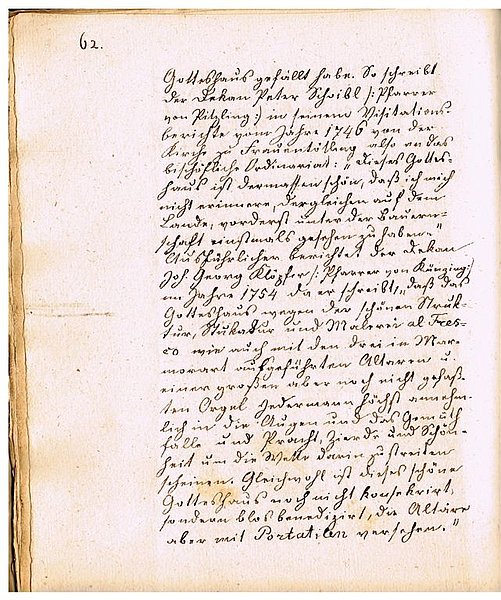 62.
Gotteshaus gefällt habe. So schreibt
der Dekan Peter Schoibl /: Pfarrer
von Pitzling :/ in seinem Visitations-
berichte vom Jahre 1746 von der
Kirche zu Frauentötling also an das
bischöfliche Ordinariat: „Dieses Gottes-
haus ist dermassen schön, daß ich mich
nicht erinnere, dergleichen auf dem
Lande, vorderst unter der Bauern-
schaft einstmals gesehen zu haben."
Ausführlicher berichtet der Dekan
Joh Georg Klöpfer /: Pfarrer von Künzing :/
im Jahre 1754 da er schreibt, „daß das
Gotteshaus wegen der schönen Struk-
tur, Stukatur und Malerei al Fres-
co wie auch mit den drei in Mar-
morart aufgeführten Altaren u.
einer großen aber noch nicht gefaß-
ten Orgel Jedermann höchst annehm-
lich in die Augen und das Gemüth
falle und Pracht, Zierde und Schön-
heit um die Wette darin zu streiten
scheinen. Gleichwohl ist dieses schöne
Gotteshaus noch nicht konsekrirt,
sondern blos benedizirt, die Altäre
aber mit Portatilen versehen."